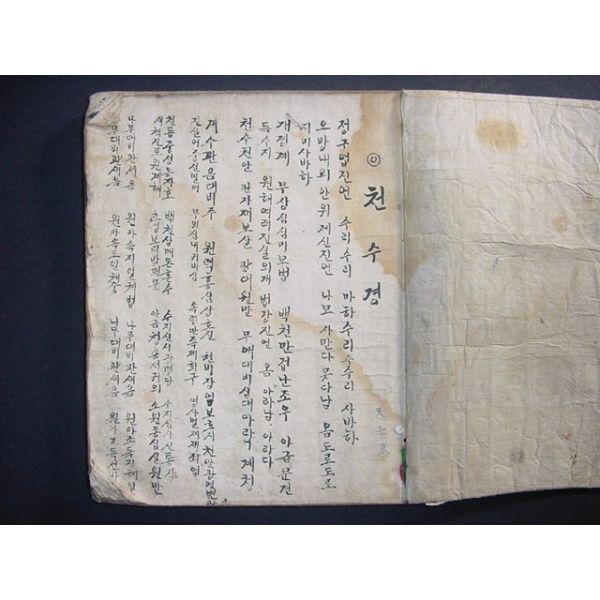 천수경
정구업진언 수리수리 마하수리 수수리 사바하
오방내외 안위제신진언 나모 사만다 못다남 옴 도로도로
지미사바하
개경계 무상심심미묘법 백천만겁난조우 아금문견
득수지 원해여래진실의 개법장진언 옴 아라남 아라다
천수천안 관자재보살 광대원만 무애대비심대다라니 계청
계수관음대비주 원력홍심상호신 천비장엄보호지 천안광명변관
진실어중선밀어 무위심내기비심 속령만족제희구 영사멸제제죄업
천룡중성동자호 백천삼매돈훈수
세척진로원제해 초증보리방편문 아금칭송서귀의 소원종심실원만
나무대비관세음 원아속지일체법 나무대비관세음 원아조득지혜안
나무대비관세음 원아속도일체중 나무대비관세음 원아조득선방